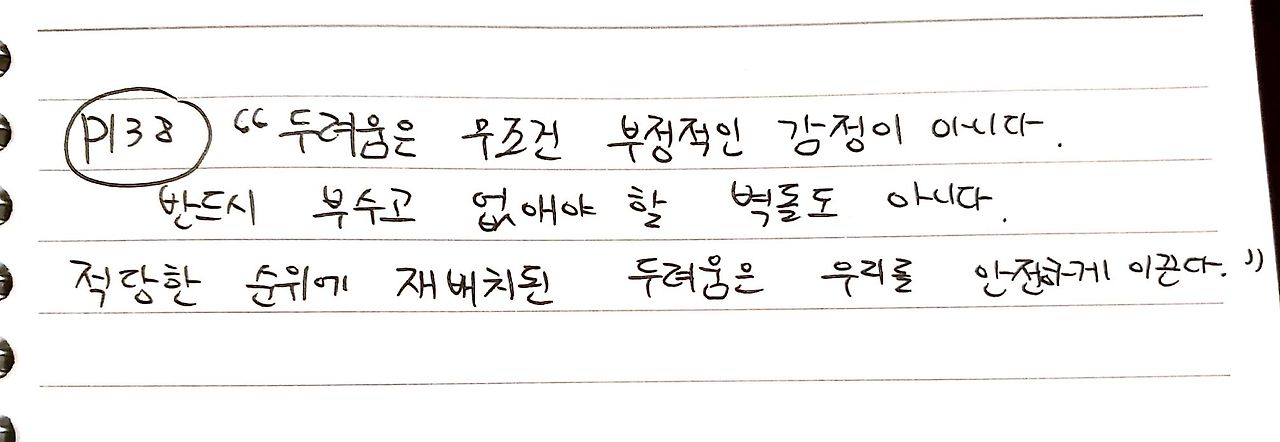 P138 "두려움은 무조건 부정적인 감정이 아니다.
반드시 부수고 없애야 할 벽돌도 아니다.
적당한 순위에 재배치된 두려움은 우리를 안전하게 이끈다."